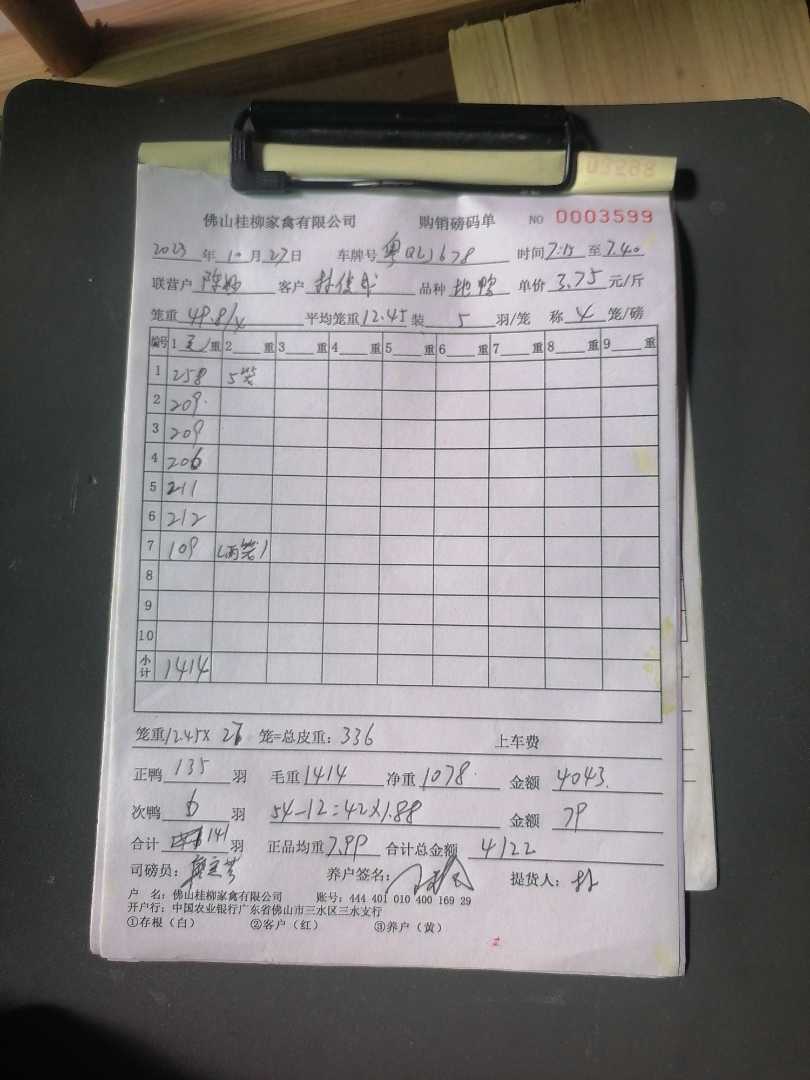 03598
佛山桂柳家禽有限公司 购销磅码单 NO 0003599
2023 年 10 月 27 日 车牌号 粤QLJ678 时间 7:15 至 7.40
联营户 客户 品种 单价 3.75 元/斤
笼重 49.8/4 平均笼重 12.45 装 5 羽/笼 称 4 笼/磅
编号 1 重 2 重 3 重 4 重 5 重 6 重 7 重 8 重 9 重
1 258 5笼
2 209
3 209
4 206
5 211
6 212
7 109 (两笼)
8
9
10
小计 1414
笼重 12.45× 27 笼=总皮重: 336 上车费
正鸭 135 羽 毛重 1414 净重 1078 金额 4043.
次鸭 6 羽 54-12=42×1.88 金额 79
合计 141 羽 正品均重 7.99 合计总金额 4122
司磅员: 养户签名: 提货人:
户 名: 佛山桂柳家禽有限公司 账号: 444 401 010 400 169 29
开户行: 中国农业银行广东省佛山市三水区三水支行
①存根(白) ②客户(红) ③养户(黄)